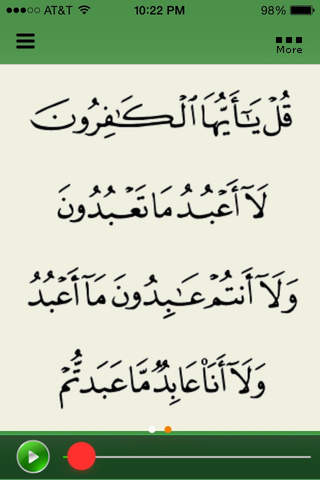 AT&T 10:22 PM 98%
More
قُلۡ يَٰٓأَيُّهَا ٱلۡكَٰفِرُونَ
لَآ أَعۡبُدُ مَا تَعۡبُدُونَ
وَلَآ أَنتُمۡ عَٰبِدُونَ مَآ أَعۡبُدُ
وَلَآ أَنَا۠ عَابِدٞ مَّا عَبَدتُّمۡ